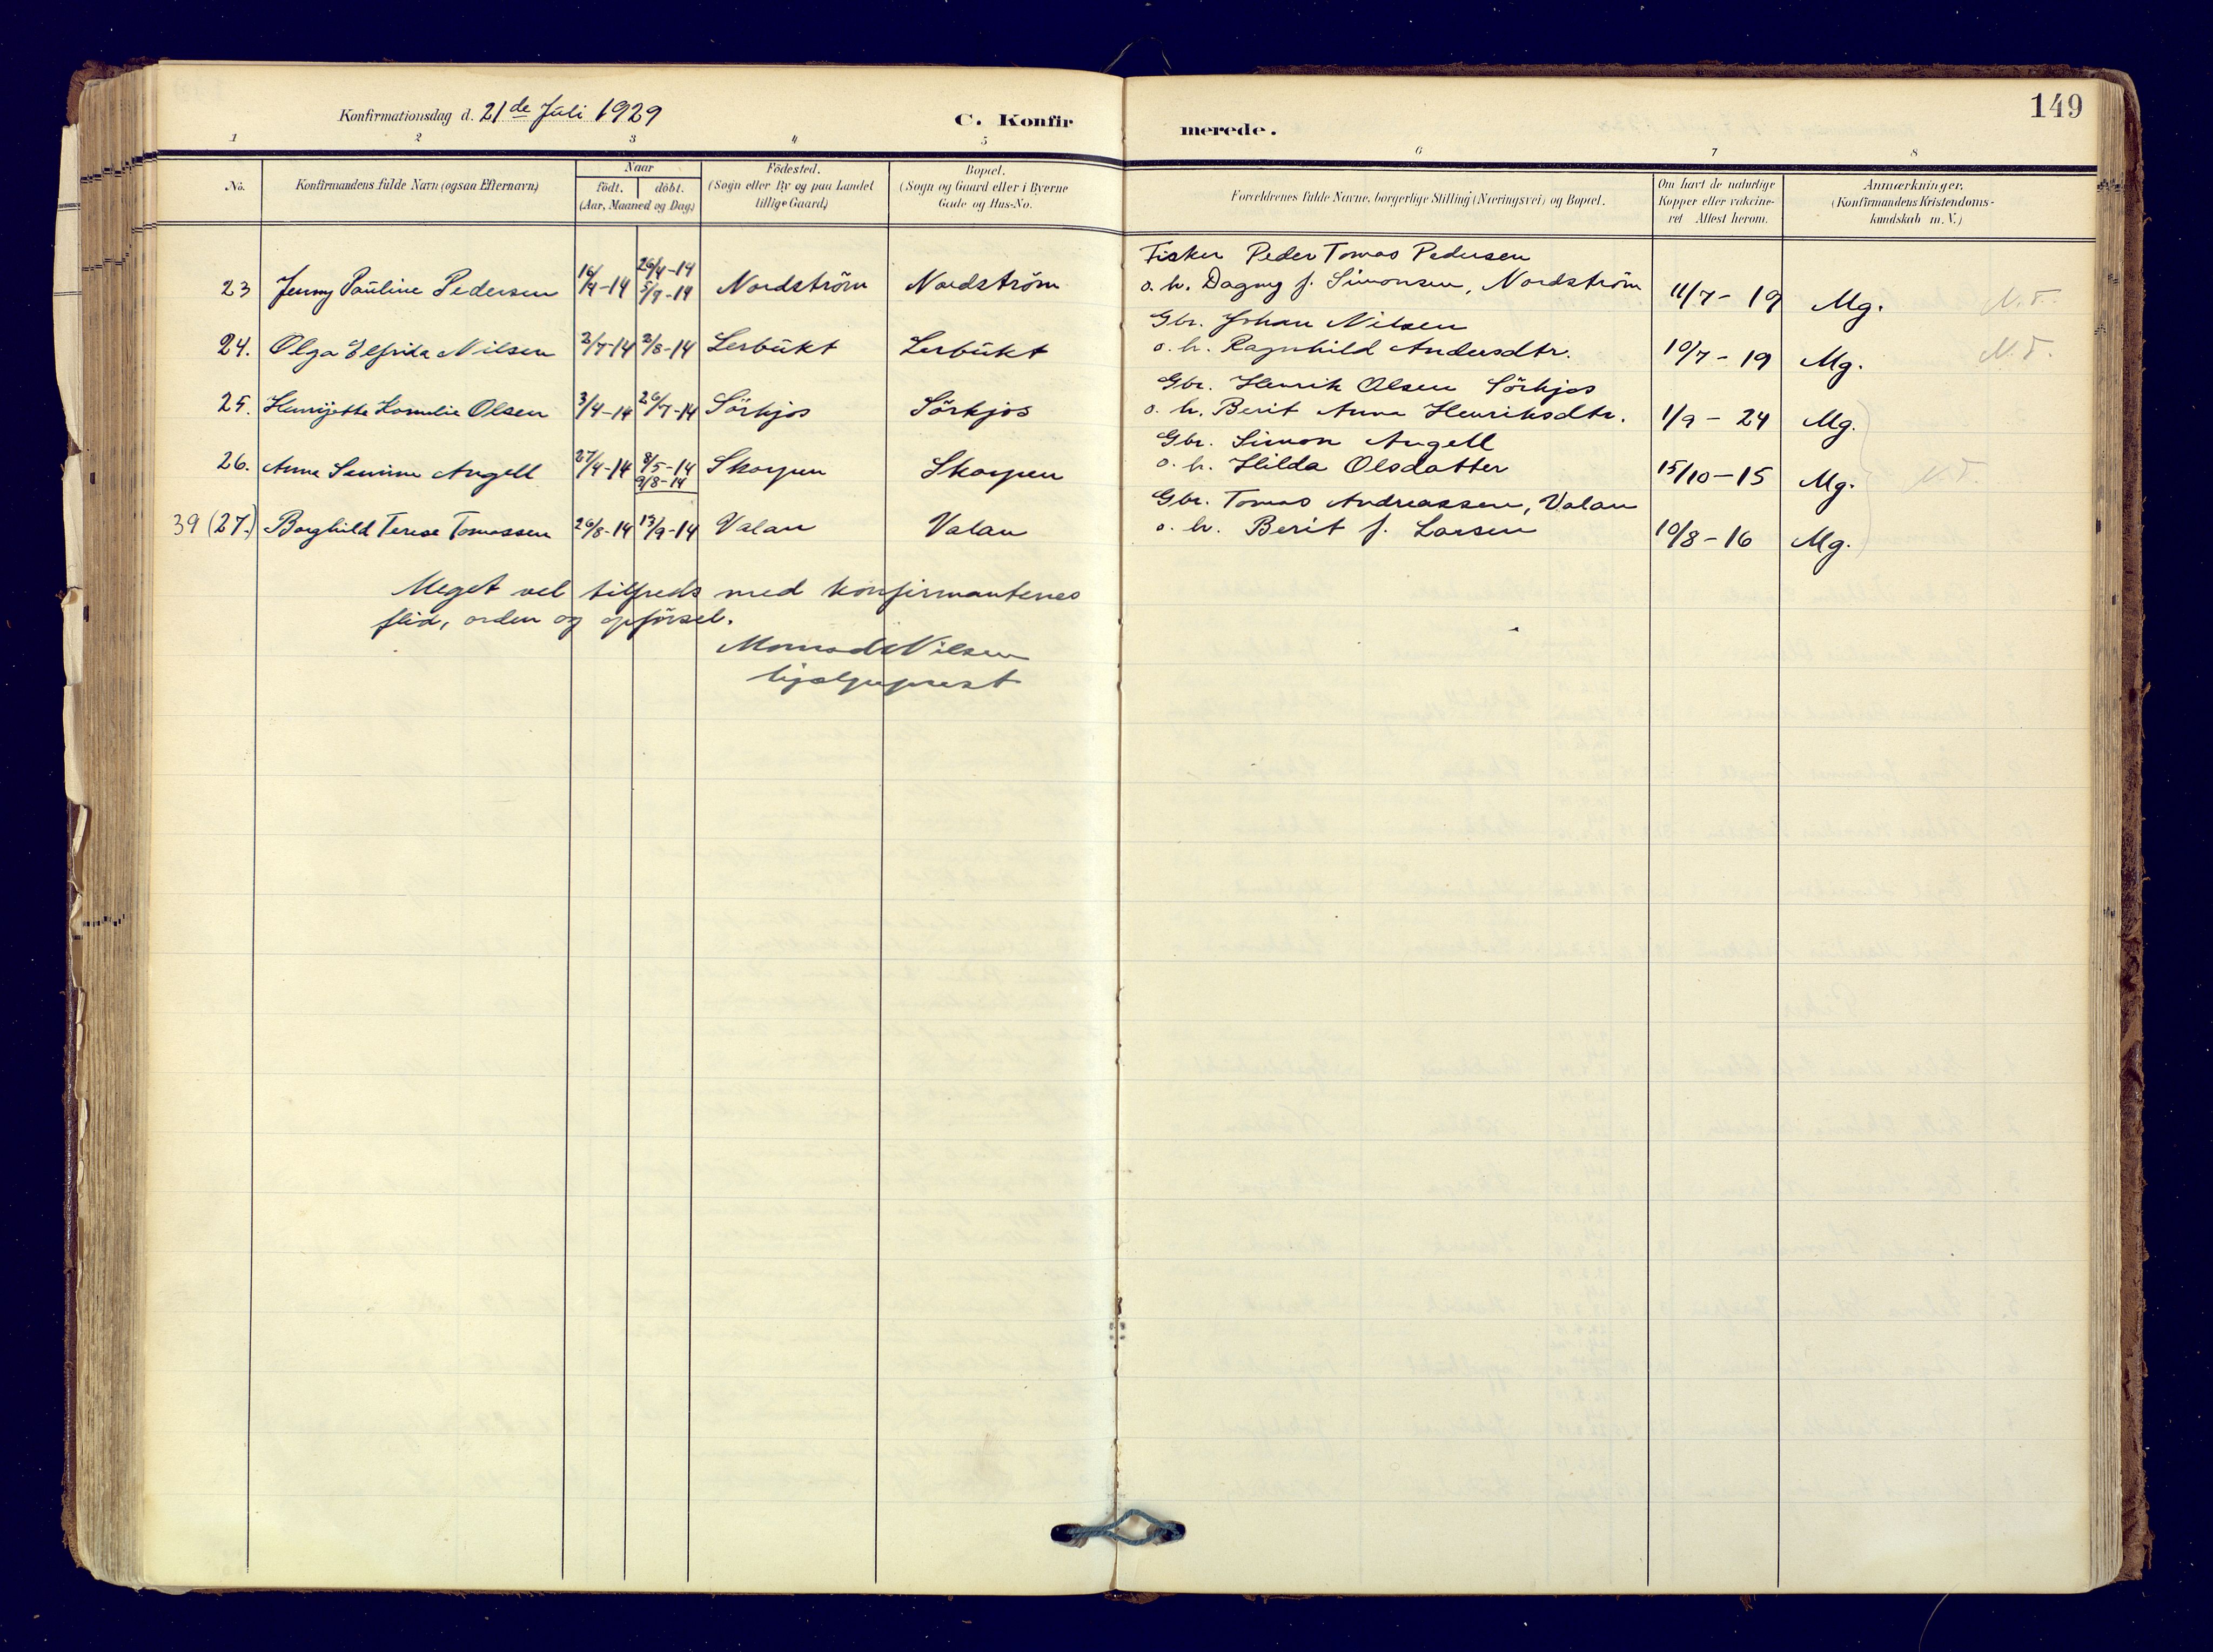 149
Konfirmationsdag d. 21de Juli 1929
C. Konfirmerede.
1 2 3 4 5 6 7 8
No.
Konfirmandens fulde Navn (ogsaa Efternavn)
Naar
födt. döbt.
(Aar, Maaned og Dag.)
Födested.
(Sogn eller By og paa Landet
tillige Gaard)
Bopæl.
(Sogn og Gaard eller i Byerne
Gade og Hus-No.
Forældrenes fulde Navne, borgerlige Stilling (Næringsvei) og Bopæl.
Om havt de naturlige
Kopper eller vakcine-
ret Attest herom.
Anmærkninger.
(Konfirmandens Kristendoms-
kundskab m. V.)
23 Jenny Pauline Pedersen 16/4-14 26/4-14 5/7-14 Nordström Nordström
Fisker Peder Tomas Pedersen
o. h. Dagny f. Simonsen, Nordström 11/7-19 Mg. N.T.
24. Olga Elfrida Nilsen 2/7-14 2/8-14 Lerbukt Lerbukt
Gbr. Johan Nilsen
o. h. Ragnhild Andersdtr. 10/7-19 Mg. N.T.
25. Henrijette Kornelie Olsen 3/4-14 26/7-14 Sörkjos Sörkjos
Gbr. Henrik Olsen Sörkjos
o. h. Berit Anna Henriksdtr. 1/9-24 Mg.
26. Anna Angell 27/4-14 8/5-14 9/8-14 Skorpen Skorpen
Gbr. Simon Angell
o. h. Hilda Olsdatter 15/10-15 Mg. N.T.
39 (27.) Borghild Terese Tomassen 26/8-14 13/9-14 Valan Valan
Gbr. Tomas Andreassen, Valan
o. h. Berit f. Larsen 10/8-16 Mg.
Meget vel tilfreds med konfirmantenes
flid, orden og opförsel.
Monrad Nilsen
hjælpeprest